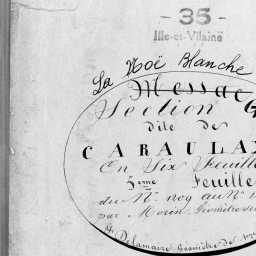 - 35 -
Ille-et-Vilaine
La Noë Blanche
Messac
Section G
dite de
CARAULA
En Six Feuille
3eme Feuille
du N°. 809 au N°.
par Morin Géomètre de
Delamaire Géomètre de